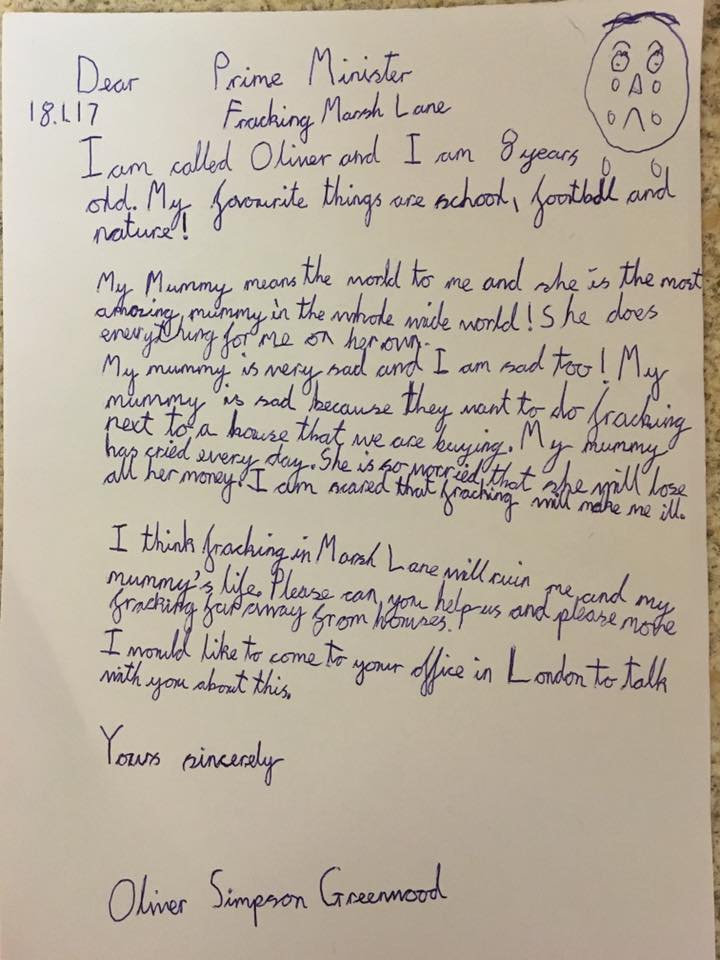 Dear Prime Minister
18.1.17 Fracking Marsh Lane
I am called Oliver and I am 8 years
old. My favourite things are school, football and
nature!
My Mummy means the world to me and she is the most
amazing mummy in the whole wide world! She does
everything for me on her own.
My mummy is very sad and I am sad too! My
mummy is sad because they want to do fracking
next to a house that we are buying. My mummy
has cried every day. She is so worried that she will lose
all her money. I am scared that fracking will make me ill.
I think fracking in Marsh Lane will ruin me and my
mummy's life. Please can you help us and please move
fracking far away from houses.
I would like to come to your office in London to talk
with you about this.
Yours sincerely
Oliver Simpson Greenwood